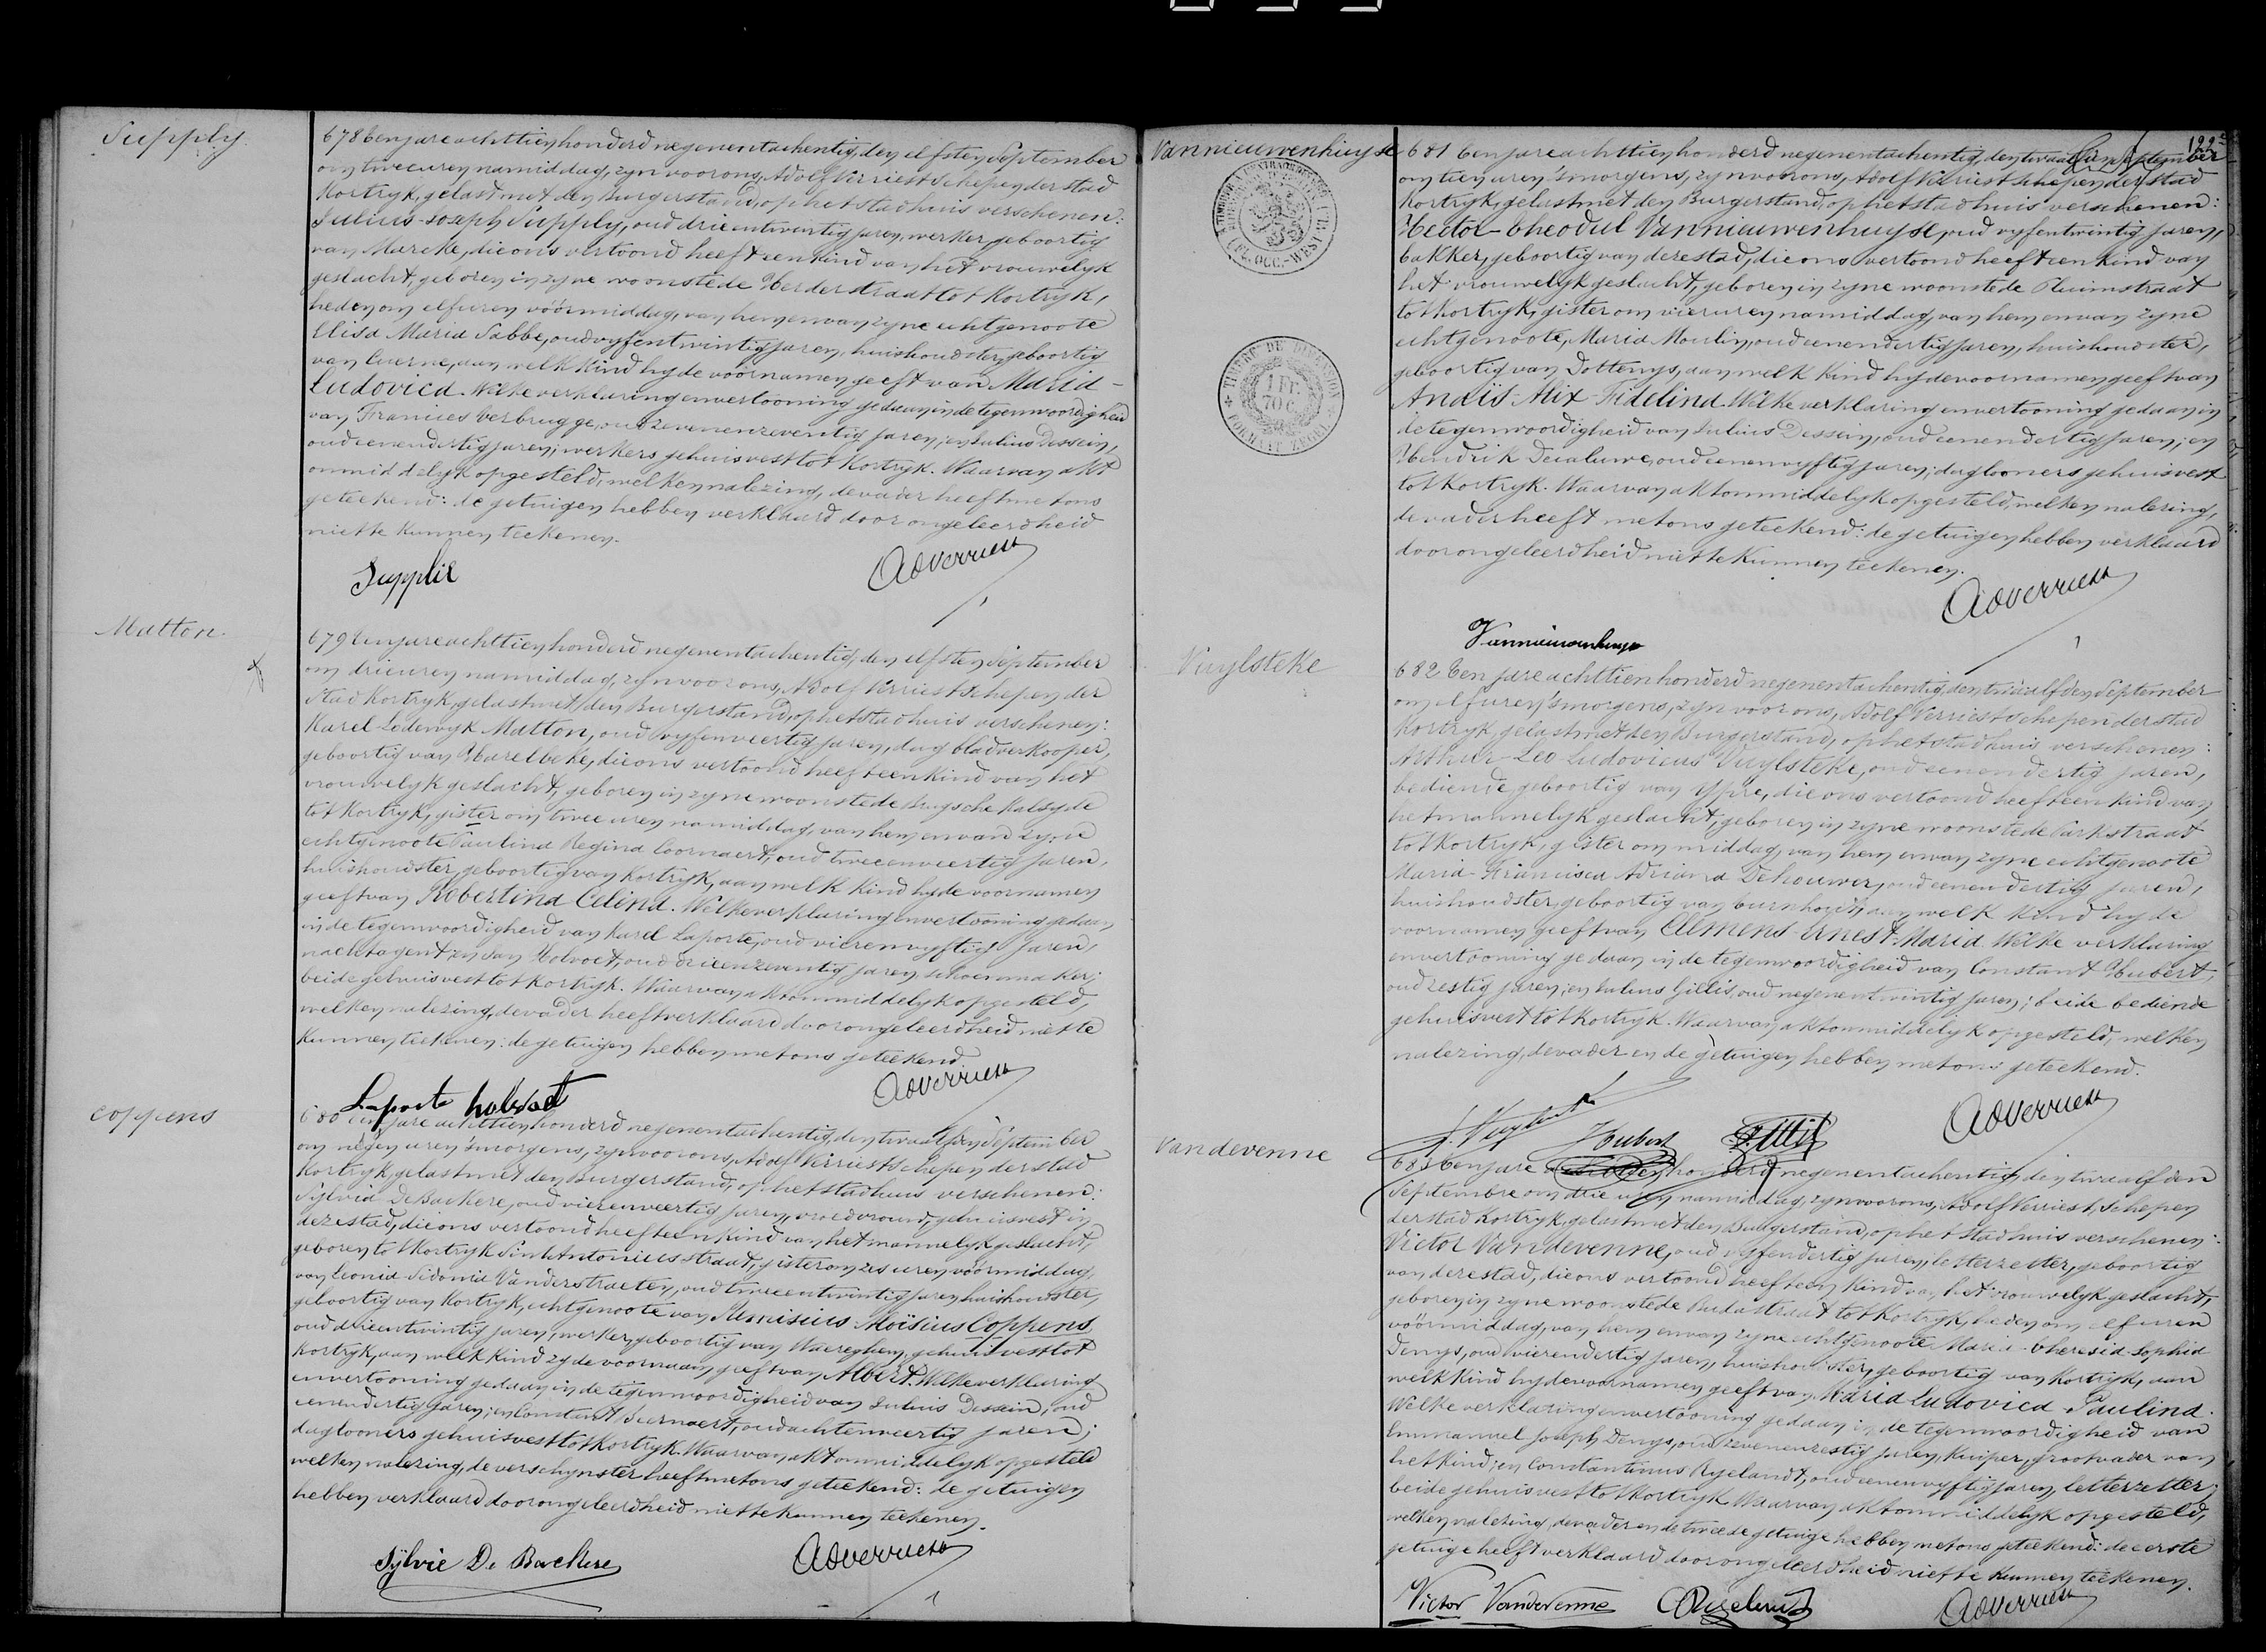 Supply
678 Ten jare achttien honderd negenentachentig, den elfsten September
om twee uren namiddag, zyn voor ons, Adolf Verriest Schepen der stad
Kortryk, gelast met den Burgerstand, op het stadhuis verschenen:
Julius-Joseph Supply, oud drieentwintig jaren, werker, geboortig
van Marcke, die ons vertoond heeft een kind van het vrouwelyk
geslacht, geboren in zyne woonstede Herderstraat tot Kortryk,
heden om elf uren vóórmiddag, van hem en van zyne echtgenoote
Elisa Maria Sabbe, oud vyfentwintig jaren, huishoudster, geboortig
van Cuerne, aan welk kind hy de vóórnamen geeft van Maria-
Ludovica. Welke verklaring en vertooning gedaan in de tegenwoordigheid
van Franciës Verbrugge, oud zevenenzeventig jaren; en Julius Dessein,
oud eenendertig jaren; werkers gehuisvest tot Kortryk. Waarvan akt
ommiddelyk opgesteld, welken nalezing, de vader heeft met ons
geteekend: de getuigen hebben verklaard door ongeleerdheid
niet te kunnen teekenen.
Supplie AdVerriest
Matton.
679 Ten jare achttien honderd negenentachentig, den elfsten September
om drie uren namiddag, zyn voor ons, Adolf Verriest Schepen der
Stad Kortryk, gelast met den Burgerstand, op het stadhuis verschenen:
Karel Lodewyk Matton, oud vyfenveertig jaren, dagbladverkooper,
geboortig van Harelbeke, die ons vertoond heeft een kind van het
vrouwelyk geslacht, geboren in zyne woonstede Brugsche Kalsyde
tot Kortryk, gister om twee uren namiddag, van hem en van zyne
echtgenoote Paulina Regina Coornaert, oud tweeenveertig jaren,
huishoudster, geboortig van Kortryk, aan welk kind hy de voornamen
geeft van Robertina Celina. Welke verklaring en vertooning gedaan
in de tegenwoordigheid van Karel Laporte, oud vierenvyftig jaren,
nachtagent; en Jan Holvoet, oud drieenzeventig jaren schoenmaker;
beide gehuisvest tot Kortryk. Waarvan akt ommiddelyk opgesteld,
welken nalezing, de vader heeft verklaard door ongeleerdheid niet te
kunnen teekenen: de getuigen hebben met ons geteekend.
Laporte holvoet AdVerriest
Coppens
680 Ten jare achttien honderd negenentachentig, den twaalfden September
om negen uren 's morgens, zyn voor ons, Adolf Verriest Schepen der stad
Kortryk, gelast met den Burgerstand, op het stadhuis verschenen:
Sylvia DeBackere, oud vierenveertig jaren, vroedvrouw, gehuisvest in
deze stad, die ons vertoond heeft een kind van het mannelyk geslacht,
geboren tot Kortryk Sint Antonius straat, gister om zes uren vóórmiddag,
van Leonia Sidonia Vanderstraeten, oud tweeentwintig jaren, huishoudster,
geboortig van Kortryk, echtgenoote van Remisius Aloïsius Coppens,
oud drieentwintig jaren, werker, geboortig van Waereghem, gehuisvest tot
Kortryk, aan welk kind zy de voornaam geeft van Albert. Welke verklaring
en vertooning gedaan in de tegenwoordigheid van Julius Dessein, oud
eenendertig jaren; en Constant Beernaert, oud achtenveertig jaren;
daglooners gehuisvest tot Kortryk. Waarvan akt ommiddelyk opgesteld
welken nalezing, de verschynster heeft met ons geteekend: de getuigen
hebben verklaard door ongeleerdheid niet te kunnen teekenen.
Sylvie De Backere AdVerriest
122
Vannieuwenhuyse
681 Ten jare achttien honderd negenentachentig, den twaalfden September
om tien uren 's morgens, zyn voor ons, Adolf Verriest schepen der stad
Kortryk, gelast met den Burgerstand, op het stadhuis verschenen:
Hector-Theodul Vannieuwenhuyse, oud vyfentwintig jaren,
bakker, geboortig van deze stad, die ons vertoond heeft een kind van
het vrouwelyk geslacht, geboren in zyne woonstede Pluimstraat
tot Kortryk, gister om vier uren namiddag, van hem en van zyne
echtgenoote, Maria Moulin, oud eenendertig jaren, huishoudster,
geboortig van Dottenys, aan welk kind hy de voornamen geeft van
Anaïs Alix Fidelina. Welke verklaring en vertooning gedaan in
de tegenwoordigheid van Julius Dessein, oud eenendertig jaren; en
Hendrik Decaluwe, oud eenenvyftig jaren; daglooners gehuisvest
tot Kortryk. Waarvan akt ommiddelyk opgesteld, welken nalezing,
de vader heeft met ons geteekend: de getuigen hebben verklaard
door ongeleerdheid niet te kunnen teekenen.
AdVerriest
Vannieuwenhuyse
TIMBRE DE DIMENSION
1 FR.
70 C.
FORMAAT ZEGEL
Vuylsteke
682 Ten jare achttien honderd negenentachentig, den twaalfden September
om elf uren 's morgens, zyn voor ons, Adolf Verriest schepen der stad
Kortryk, gelast met den Burgerstand, op het stadhuis verschenen:
Arthur Leo Ludovicus Vuylsteke, oud eenendertig jaren,
bediende geboortig van Ypre, die ons vertoond heeft een kind van
het mannelyk geslacht, geboren in zyne woonstede Parkstraat
tot Kortryk, gister om middag, van hem en van zyne echtgenoote
Maria-Francisca Adriana Dehouwer, oud eenendertig jaren,
huishoudster, geboortig van Turnhout, aan welk kind hy de
voornamen geeft van Clemens-Ernest-Maria. Welke verklaring
en vertooning gedaan in de tegenwoordigheid van Constant Hubert,
oud zestig jaren; en Julius Gillis, oud negenentwintig jaren; beide bediende
gehuisvest tot Kortryk. Waarvan akt ommiddelyk opgesteld, welken
nalezing, de vader en de getuigen hebben met ons geteekend.
Houbert AdVerriest
Vandevenne
683 Ten jare honderd negenentachentig, den twaalfden
Septembre om drie uren namiddag, zyn voor ons, Adolf Verriest, Schepen
der stad Kortryk, gelast met den Burgerstand, op het stadhuis verschenen:
Victor Vandevenne, oud vyfendertig jaren, letterzetter, geboortig
van deze stad, die ons vertoond heeft een kind van het vrouwelyk geslacht,
geboren in zyne woonstede Budastraat tot Kortryk, heden om elf uren
vóórmiddag, van hem en van zyne echtgenoote Maria-Theresia Sophia
Denys, oud vierendertig jaren, huishoudster, geboortig van Kortryk, aan
welk kind hy de voornamen geeft van Maria Ludovica Paulina.
Welke verklaring en vertooning gedaan in de tegenwoordigheid van
Emmanuel Joseph Denys, oud zevenenzestig jaren, kuiper, grootvader van
het kind; en Constantinus Ryelandt, oud eenenvyftig jaren, letterzetter;
beide gehuisvest tot Kortryk. Waarvan akt ommiddelyk opgesteld,
welken nalezing, de vader en de tweede getuige hebben met ons geteekend: de eerste
getuige heeft verklaard door ongeleerdheid niet te kunnen teekenen.
Victor Vandevenne CRyelandt AdVerriest